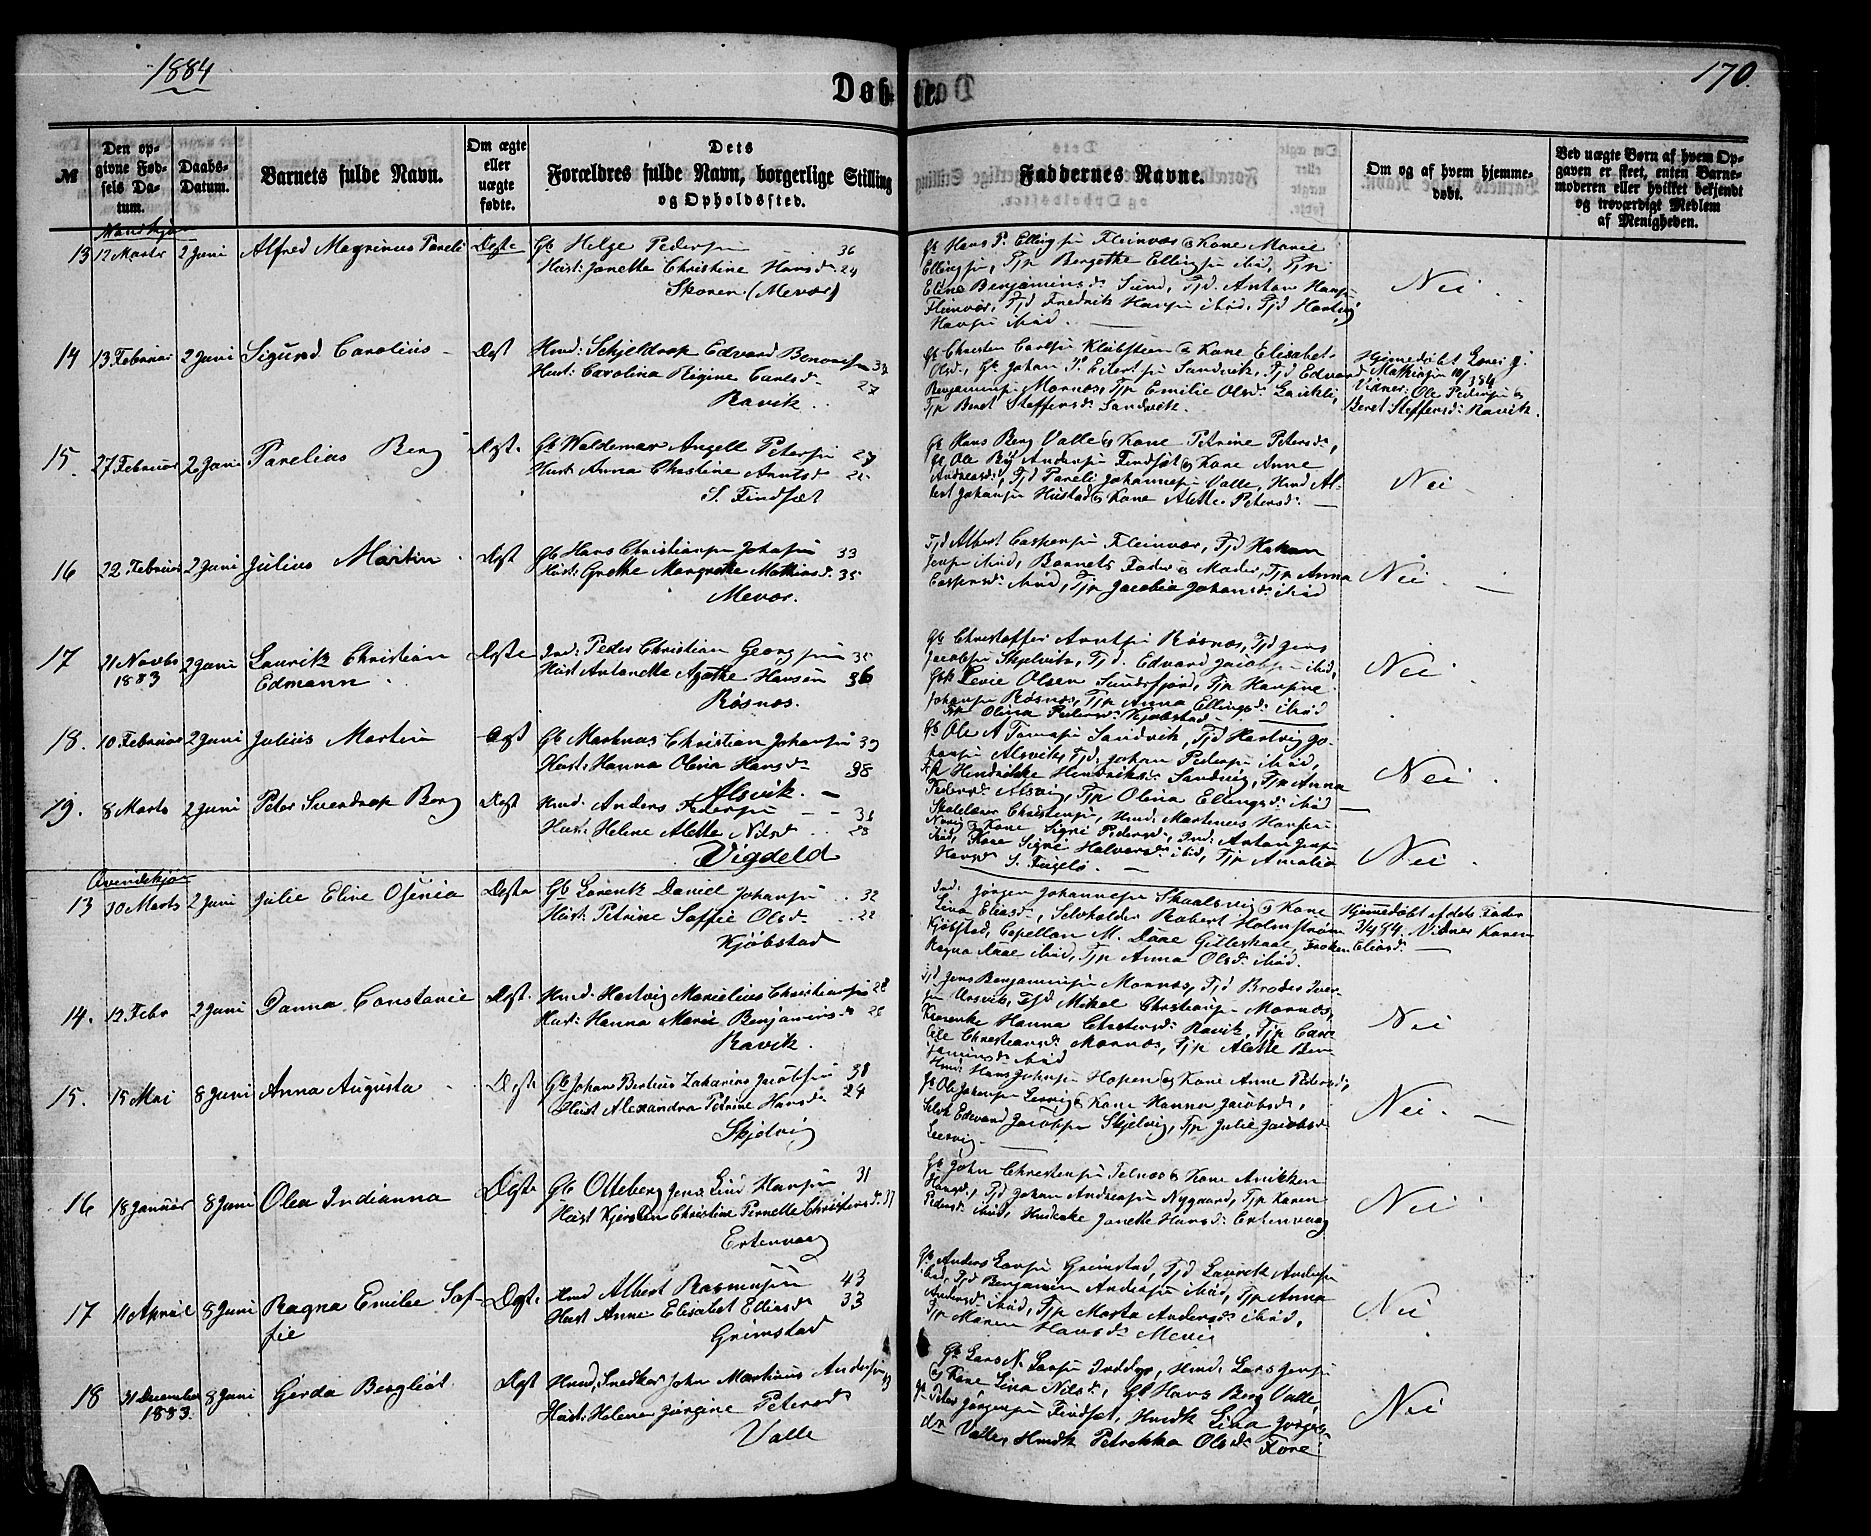 1884
Døb- te.
170.
№
Den op-
givne Fød-
sels Da-
tum.
Daabs-
Datum.
Barnets fulde Navn.
Om ægte
eller
uægte
fødte.
Dets
Forældres fulde Navn, borgerlige Stilling
og Opholdssted.
Faddernes Navne.
Om og af hvem hjemme-
døbt.
Ved uægte Børn af hvem Op-
gaven er skeet, enten Barne-
moderen eller hvilket bekjendt
og troværdigt Medlem
af Menigheden.
Mandkjøn
13 12 Marts 2 Juni Alfred Magrinus Pareli Ægte
Gb Helge Pedersen 36
Hust: Janetta Christine Hansd. 24
Skaren (Mevær)
Gb Hans P. Ellingsen Fleinvær & Kone Marie
Ellingsen, Tjp Bergethe Ellingsen ibid, Tjp
Eline Benjaminsd. Sund, Tjd. Anton Hans-
Fleinvær, Tjd Fredrik Hansen ibid, Tjd Hartvig
Hansen ibid.
Nei
14 13 Februar 2 Juni Sigurd Carolius Ægt
Hmd: Schjeldrop Edvard Benonisen 37
Hust: Carolina Regine Carlsd. 27
Ravik.
Gb Christen Carlsen Klabsteen & Kone Elisabet
Olsd., Gb Johan P. Eilertsen Sandvik, Tjd Edvard
Benjaminsen Mornæs, Tjp Emilie Olsd.
Tjp Beret Steffensd. Sandvik.
Hjemmedøbt
Mathisen 10/3 84
Vidner: Ole Pedersen &
Beret Steffensd. Ravik.
15. 27 Februar 2 Juni Parelius Berg Ægt.
Gb Waldemar Angell Petersen 27
Hust: Anna Christine Arntsd. 22
S. Findsæt
Gb Hans Berg Valle & Kone Petrine Petersd.,
Gb Ole Bij Andersen Findsæt & Kone Anne
Andreasd., Tjd Pareli Johannesen Valle, Hmd Al-
bert Johansen Hustad & Kone Alette Petersd.
Nei
16 22 Februar 2 Juni Julius Martin Ægt
Gb Hans Christiansen Johansen 33
Hust: Grethe Margrethe Mathiasd. 35
Mevær.
Tjd Albert Caspersen Fleinvær, Tjd Hakon
Jensen ibid, Barnets Fader & Moder, Tjp Anna
Caspersd. ibid, Tjp Jacobia Johansd. ibid
Nei
17 21 Novbr 2 Juni Laurits Christian Ægte
1883 Edmann
Ind: Peder Christian Georgsen 35
Hust Antonetta Agathe Hansen 36
Røsnæs.
Gb Christoffer Arntsen Røsnæs, Tjd Jens
Jacobsen Skjelvik, Tjd. Edvard Jacobsen ibid,
Levie Olsen Sundsfjord, Tjp Hansine
Johansen Røsnæs, Tjp Anna Ellingsd. ibid
Tjp Olina Pedersd. Kjøbstad
Nei
18. 10 Februar 2 Juni Julius Martin Ægt
Gb Martinus Christian Johansen 39
Hust: Hanna Olina Hansd. 38
Alsvik.
Gb Ole A Tomasen Sandvik, Tjd Hartvig Jo-
hansen Alsvik, Tjd. Johan Pedersen ibid,
Tjp Hendrikke Hendriksd. Sandvig, Tjp Anna
Pedersd. Alsvig, Tjp Olina Ellingsd. ibid
Nei
19. 8 Marts 2 Juni Peter Svendrop Berg Ægt
Hmd: Anders Pedersen 36
Hust: Helene Alette Nilsd. 28
Vigdeld
Skolelærer Christensen, Hmd. Martinus Hansen
Norvig & Kone Sigri Pedersd., Ind: Anton Jensen
ibid, Kone Sigri Halvorsd. ibid, Tjp Amalia
Hansd. S. Fugelø.
Nei
Qvindekjøn
13 30 Marts 2 Juni Julie Eline Osenia Ægte
Gb Lorentz Daniel Johansen 32
Hust: Petrine Soffie Olsd. 22
Kjøbstad
Ind: Jørgen Johannesen Skaalsvig & Kone
Lina Eliasd., Selvholder Robert Holmstrøm
Kjøbstad, Capellan M. Daae Gilleskaal, Frøken
Ragna Daae ibid, Tjp Anna Olsd. ibid.
Hjemmedøbt af dets Fader
3/4 84. Vidner Karen
Eliasd.
14. 12 Febr 2 Juni Danna Constance Ægt.
Hmd. Hartvig Marelius Christiansen 28
Hust: Hanna Marie Benjaminsd. 26
Ravik.
Tjd Jens Benjaminsen Mornæs, Tjd Broder Iver-
sen Arsvik, Tjd Mikal Christians. Mornæs,
Hanna Christensd. Ravik, Tjp Ceci-
lie Christiansd. Mornæs, Tjp Alette Ben-
jaminsd. ibid
Nei
15. 15 Mai 8 Juni Anna Augusta Ægte
Gb Johan Bertius Zakarias Jacobsen 38
Hust Alexandra Petrine Hansd. 24
Skjelvig
Hmd: Hans Johnsen Hopen & Kone Anne Pedersd.,
Gb Ole Johansen Leevig & Kone Hanna Jacobsd.,
Selvh Edvard Jacobsen Skjelvig, Tjp Julie Jacobsd.
Leevig.
Nei.
16 18 Januar 8 Juni Olea Indianna Ægte
Gb Otteberg Jens Lind Hansen 31
Hust Kjersten Christine Pernelle Christensd. 37
Ertenvaag
Gb John Christensen Telnæs & Kone Anikken
Hansd., Tjd Johan Andreasen Nygaard, Tjp Karen
Pedersd. ibid, Janette Hansd. Ertenvaag
Nei
17 11 April 8 Juni Ragna Emilie Sof- Ægt.
fie
Hmd Albert Rasmussen 43
Hust Anne Elisabet Elliasd. 33
Grimstad
Gb Anders Larsen Grimstad, Tjd Laurits Andersen
ibid, Tjd Benjamin Andersen ibid, Tjp Anna
Andersd. ibid, Tjp Marta Andersd. ibid,
Tjp Maren Hansd. Mevig
Nei
18 31 December 8 Juni Gerda Bergliot Ægt
1883.
Hmd, Snedker John Martinus Andersen 43
Hust: Helene Jørgine Petersd.
Valle
Gb Lars N. Larsen Inddyr, Hmd. Lars Jensen
& Kone Lina Nilsd., Gb Hans Berg Valle,
Gb Peter Jørgensen Findsæt, Hmdk Lina Jørgens-
dr Valle, Hmdk Petrikka Olsd. Fore
Nei